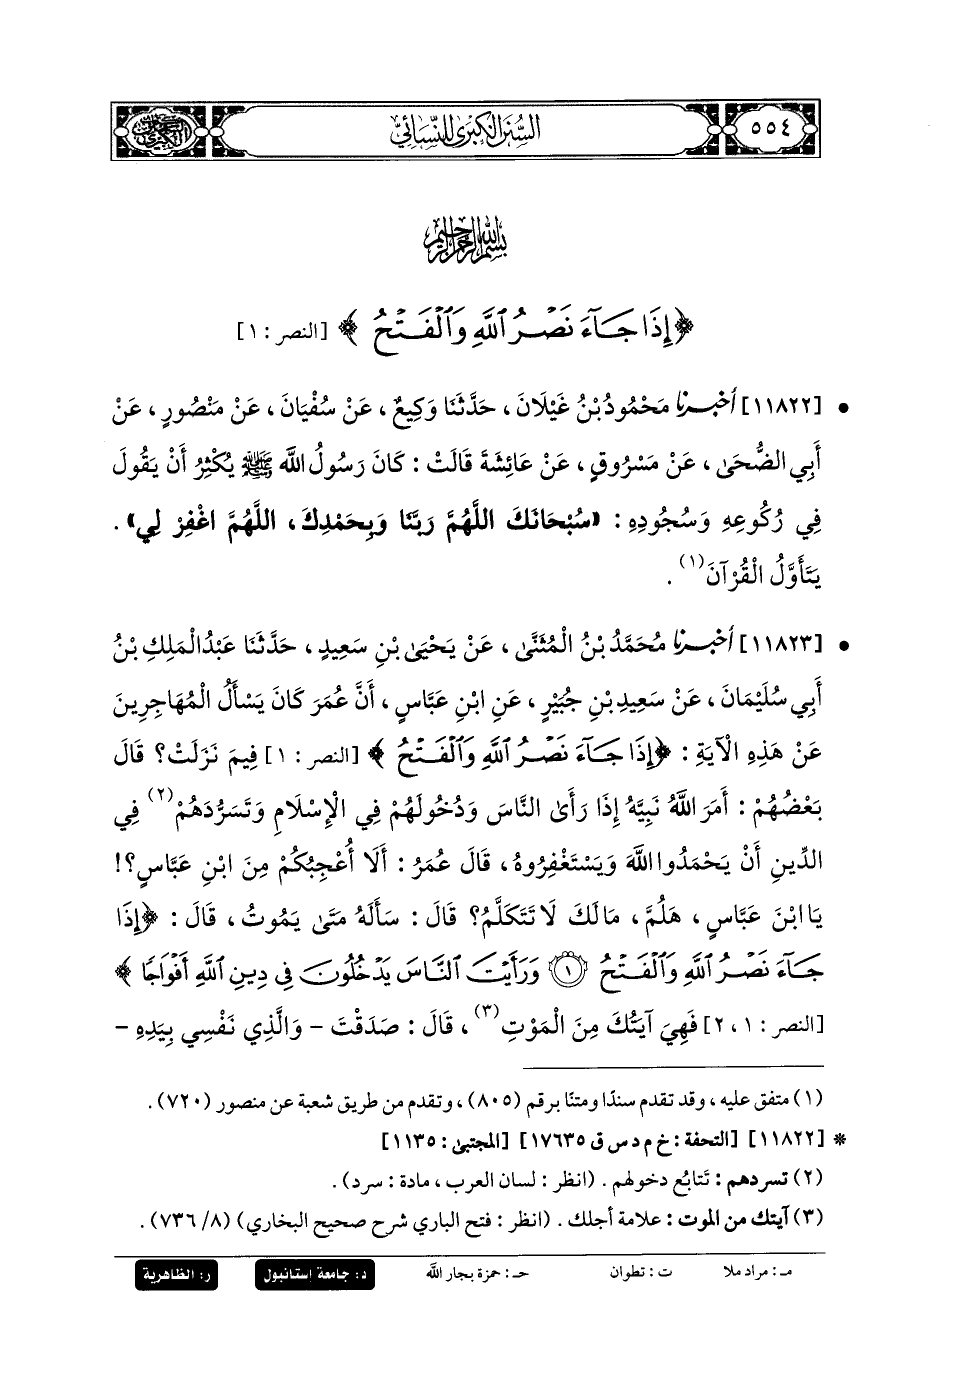 ٥٥٤
السنن الكبرى للنسائي
السنن الكبرى
بسم الله الرحمن الرحيم
﴿ إِذَا جَآءَ نَصْرُ ٱللَّهِ وَٱلْفَتْحُ ﴾ [النصر : ١]
• [١١٨٢٢] أَخْبَرَنَا مَحْمُودُ بْنُ غَيْلَانَ ، حَدَّثَنَا وَكِيعٌ ، عَنْ سُفْيَانَ ، عَنْ مَنْصُورٍ ، عَنْ
أَبِي الضُّحَىٰ ، عَنْ مَسْرُوقٍ ، عَنْ عَائِشَةَ قَالَتْ : كَانَ رَسُولُ اللَّهِ ﷺ يُكْثِرُ أَنْ يَقُولَ
فِي رُكُوعِهِ وَسُجُودِهِ : «سُبْحَانَكَ اللَّهُمَّ رَبَّنَا وَبِحَمْدِكَ ، اللَّهُمَّ اغْفِرْ لِي» .
يَتَأَوَّلُ الْقُرْآنَ (١) .
• [١١٨٢٣] أَخْبَرَنَا مُحَمَّدُ بْنُ الْمُثَنَّىٰ ، عَنْ يَحْيَىٰ بْنِ سَعِيدٍ ، حَدَّثَنَا عَبْدُ الْمَلِكِ بْنُ
أَبِي سُلَيْمَانَ ، عَنْ سَعِيدِ بْنِ جُبَيْرٍ ، عَنِ ابْنِ عَبَّاسٍ ، أَنَّ عُمَرَ كَانَ يَسْأَلُ الْمُهَاجِرِينَ
عَنْ هَذِهِ الْآيَةِ : ﴿ إِذَا جَآءَ نَصْرُ ٱللَّهِ وَٱلْفَتْحُ ﴾ [النصر : ١] فِيمَ نَزَلَتْ؟ قَالَ
بَعْضُهُمْ : أَمَرَ اللَّهُ نَبِيَّهُ إِذَا رَأَىٰ النَّاسَ وَدُخُولَهُمْ فِي الْإِسْلَامِ وَتَسَرُّدَهُمْ (٢) فِي
الدِّينِ أَنْ يَحْمَدُوا اللَّهَ وَيَسْتَغْفِرُوهُ ، قَالَ عُمَرُ : أَلَا أُعْجِبُكُمْ مِنَ ابْنِ عَبَّاسٍ؟!
يَا ابْنَ عَبَّاسٍ ، هَلُمَّ ، مَا لَكَ لَا تَتَكَلَّمُ؟ قَالَ : سَأَلَهُ مَتَىٰ يَمُوتُ ، قَالَ : ﴿ إِذَا
جَآءَ نَصْرُ ٱللَّهِ وَٱلْفَتْحُ ١ وَرَأَيْتَ ٱلنَّاسَ يَدْخُلُونَ فِى دِينِ ٱللَّهِ أَفْوَاجًا ﴾
[النصر : ١، ٢] فَهِيَ آيَتُكَ مِنَ الْمَوْتِ (٣) ، قَالَ : صَدَقْتَ - وَالَّذِي نَفْسِي بِيَدِهِ -
(١) متفق عليه ، وقد تقدم سندًا ومتنًا برقم (٨٠٥) ، وتقدم من طريق شعبة عن منصور (٧٢٠) .
* [١١٨٢٢] [التحفة : خ م د س ق ١٧٦٣٥] [المجتبىٰ : ١١٣٥]
(٢) تسردهم : تَتابُع دخولهم . (انظر : لسان العرب ، مادة : سرد) .
(٣) آيتك من الموت : علامة أجلك . (انظر : فتح الباري شرح صحيح البخاري) (٨/ ٧٣٦) .
مـ : مراد ملا ت : تطوان حـ : حمزة بجار الله د : جامعة إستانبول ر : الظاهرية